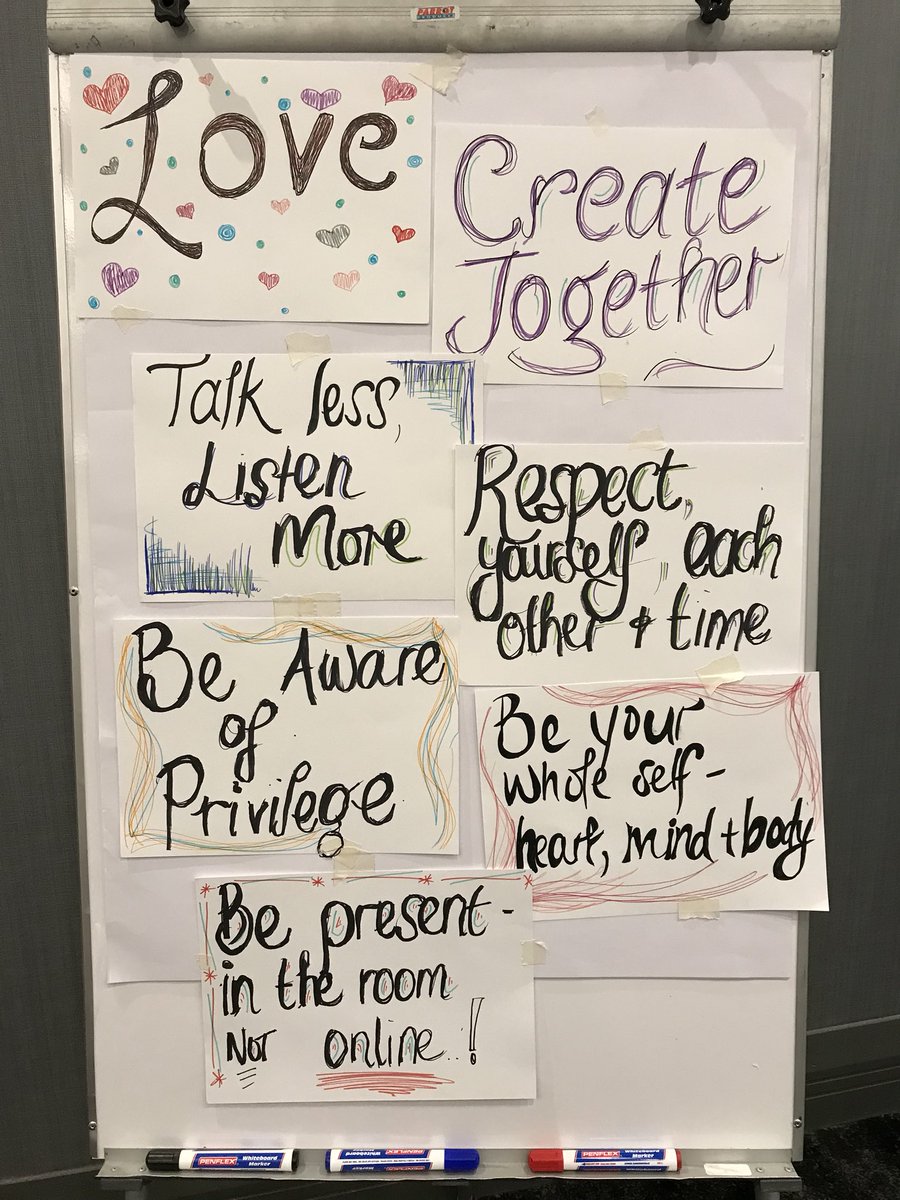 PARROT
PRODUCTS
Love
Create
Together
Talk less,
Listen
More
Respect,
yourself, each
other + time
Be Aware
of
Privilege
Be your
whole self-
heart, mind + body
Be present-
in the room
NOT online..!
PENFLEX Whiteboard Marker
PENFLEX Whiteboard Marker
PENFLEX Whiteboard Marker